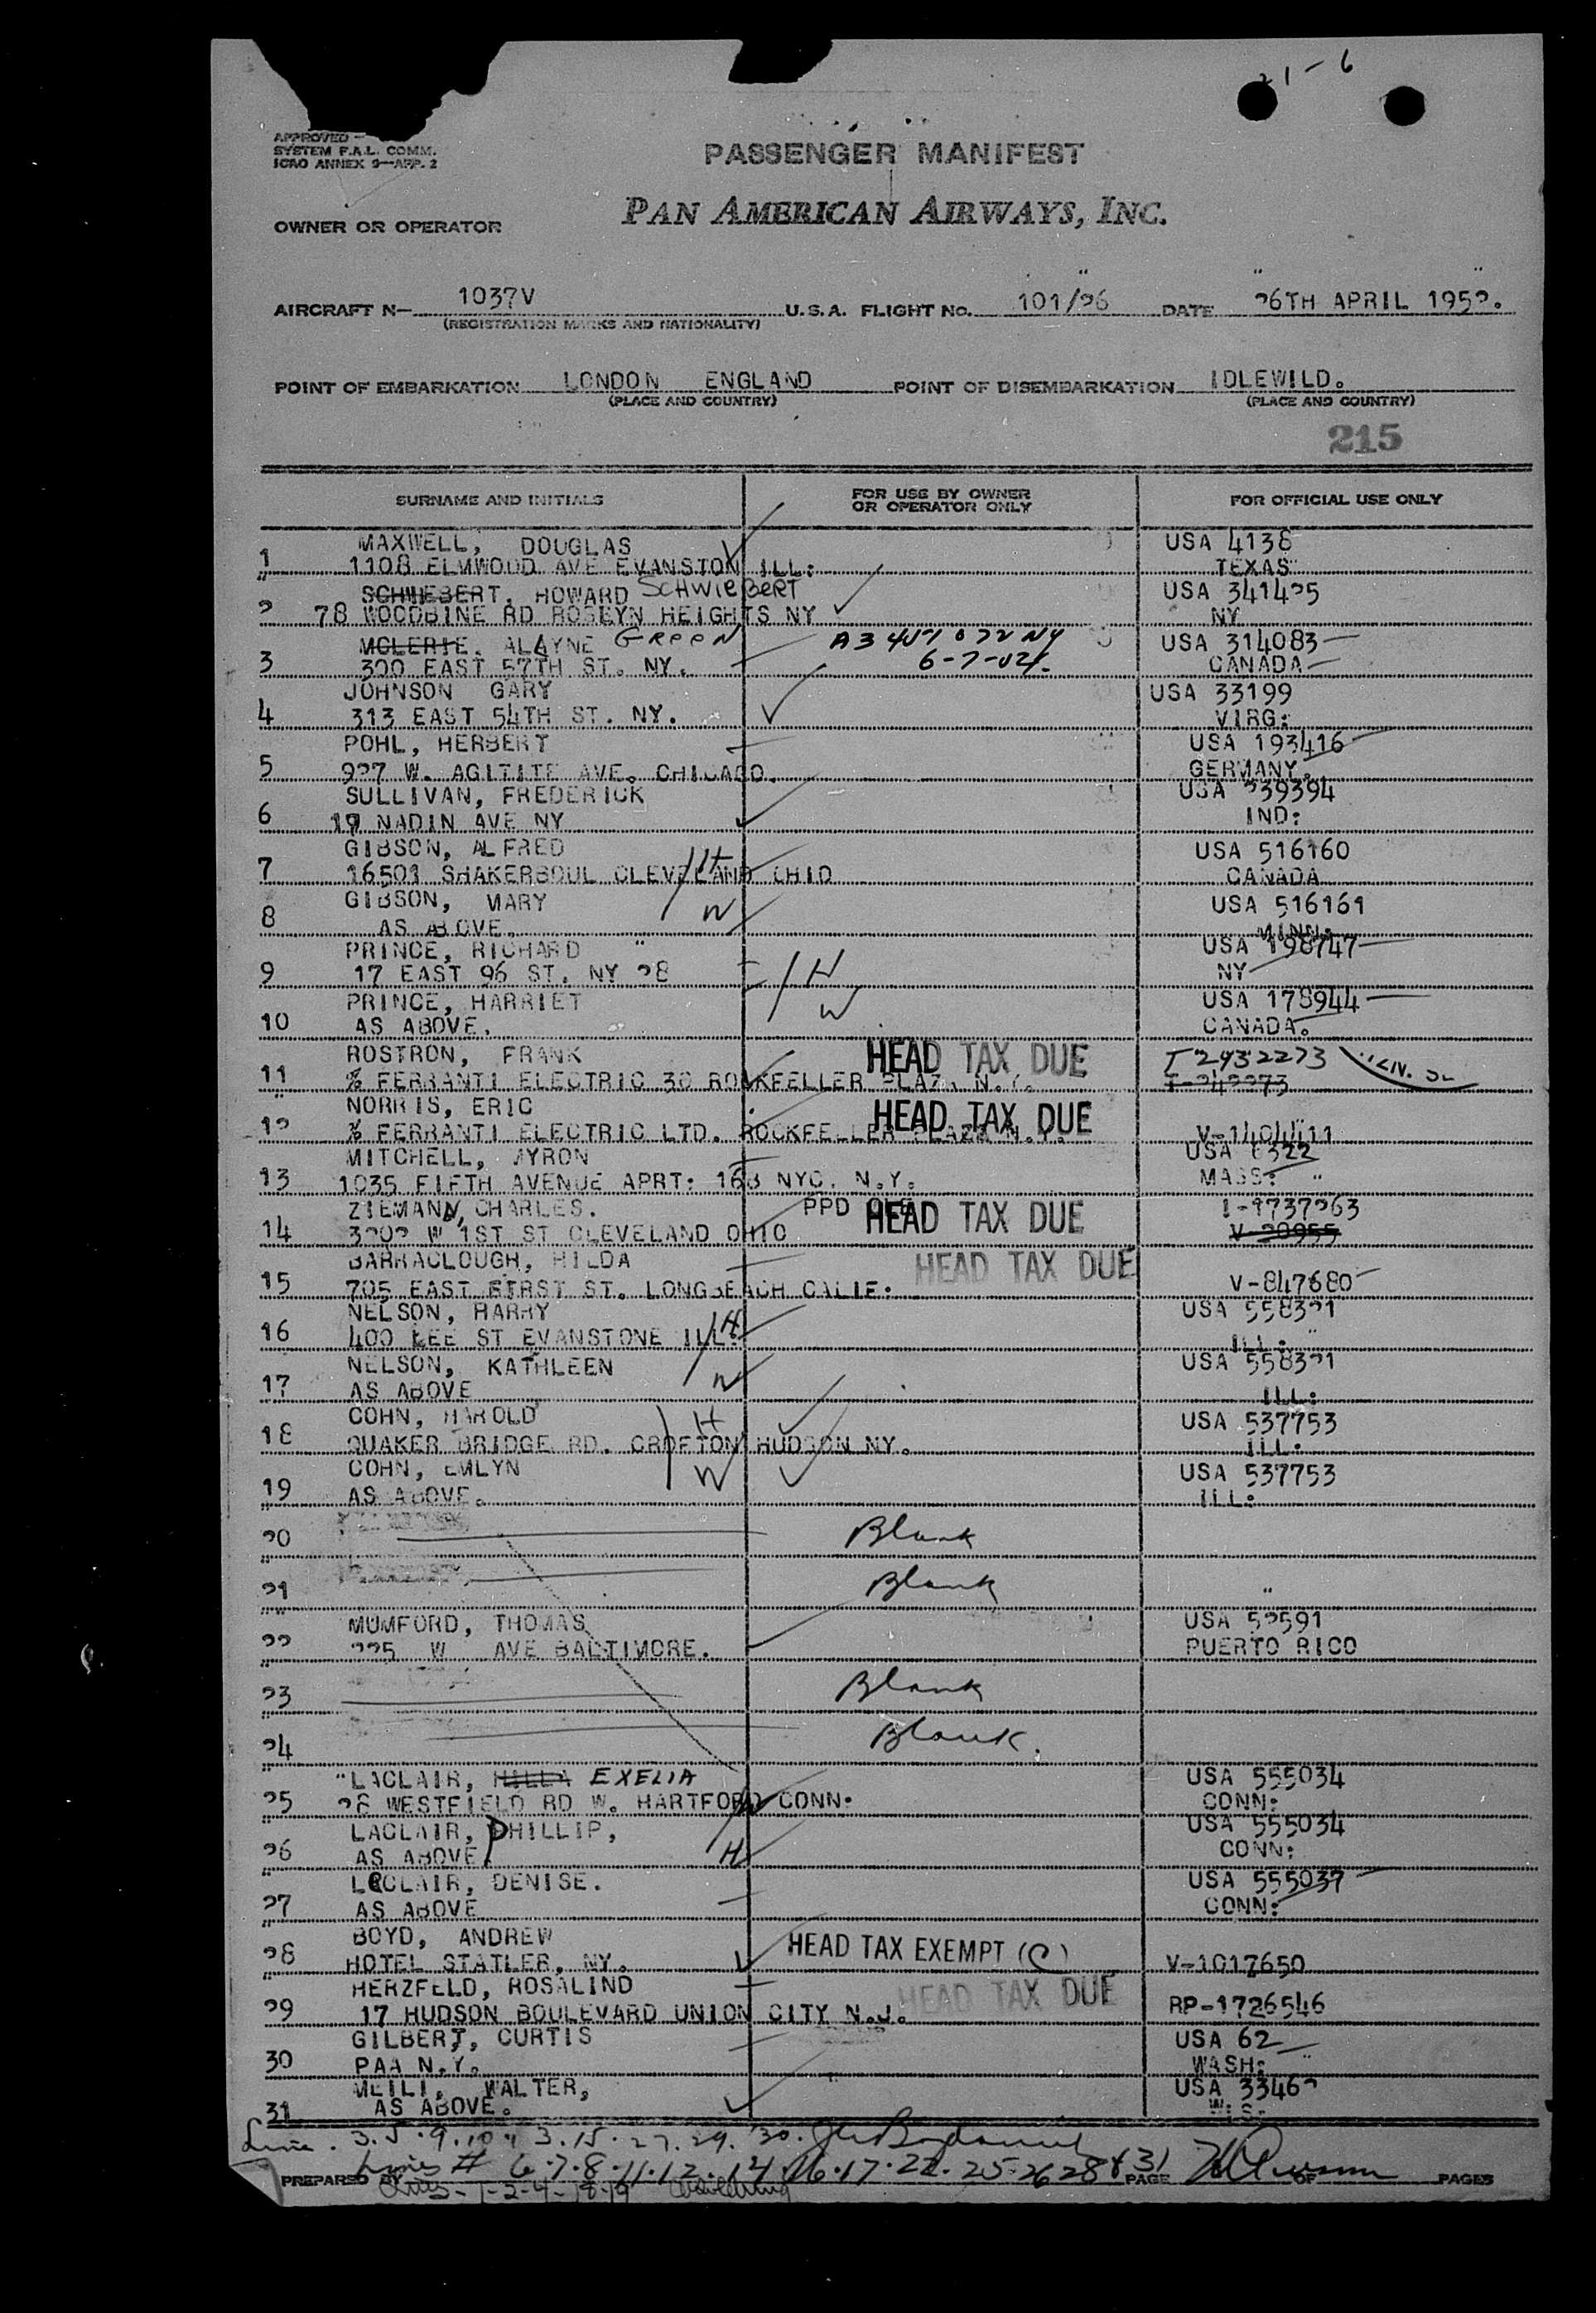 21-6
APPROVED
SYSTEM F.A.L. COMM.
ICAO ANNEX 9—APP. 2
PASSENGER MANIFEST
PAN AMERICAN AIRWAYS, INC.
OWNER OR OPERATOR
AIRCRAFT N— 1037V U.S.A. FLIGHT NO. 101/26 DATE 26TH APRIL 1952.
(REGISTRATION MARKS AND NATIONALITY)
POINT OF EMBARKATION LONDON ENGLAND POINT OF DISEMBARKATION IDLEWILD.
(PLACE AND COUNTRY) (PLACE AND COUNTRY)
215
SURNAME AND INITIALS FOR USE BY OWNER OR OPERATOR ONLY FOR OFFICIAL USE ONLY
MAXWELL, DOUGLAS USA 4138
1 1108 ELMWOOD AVE EVANSTON ILL: TEXAS
SCHWEBERT, HOWARD SCHWIEBERT USA 341425
2 78 WOODBINE RD ROSLYN HEIGHTS NY NY
MCLERIE, ALAYNE GREEN A3 407 072 NY USA 314083
3 300 EAST 57TH ST. NY. 6-7-02 CANADA
JOHNSON GARY USA 33199
4 313 EAST 54TH ST. NY. VIRG:
POHL, HERBERT USA 193416
5 927 W. AGITITE AVE. CHICAGO. GERMANY.
SULLIVAN, FREDERICK USA 239394
6 19 NADIN AVE NY IND:
GIBSON, ALFRED H USA 516160
7 16501 SHAKERBOUL CLEVELAND OHIO CANADA
GIBSON, MARY W USA 516161
8 AS ABOVE. MINN:
PRINCE, RICHARD USA 198747
9 17 EAST 96 ST. NY 28 H NY
PRINCE, HARRIET W USA 178944
10 AS ABOVE. CANADA.
ROSTRON, FRANK HEAD TAX DUE I 2432273
11 % FERRANTI ELECTRIC 30 ROCKFELLER PLAZA N.Y. I-242273
NORRIS, ERIC HEAD TAX DUE
12 % FERRANTI ELECTRIC LTD. ROCKFELLER PLAZA N.Y. V-1404411
MITCHELL, MYRON USA 6322
13 1035 FIFTH AVENUE APRT: 16B NYC. N.Y. MASS:
ZIEMANN, CHARLES. PPD HEAD TAX DUE I-1737263
14 3202 W 1ST ST CLEVELAND OHIO V-20955
BARRACLOUGH, HILDA HEAD TAX DUE
15 705 EAST FIRST ST. LONGBEACH CALIF: V-847680
NELSON, HARRY H USA 558321
16 400 LEE ST EVANSTONE ILL: ILL:
NELSON, KATHLEEN W USA 558321
17 AS ABOVE ILL:
COHN, HAROLD H USA 537753
18 QUAKER BRIDGE RD. CROFTON HUDSON NY. ILL:
COHN, EMLYN W USA 537753
19 AS ABOVE. ILL:
20 Blank
21 Blank
MUMFORD, THOMAS USA 52591
22 225 W AVE BALTIMORE. PUERTO RICO
23 Blank
24 Blank.
LACLAIR, HILDA EXELIA USA 555034
25 28 WESTFIELD RD W. HARTFORD CONN: W CONN:
LACLAIR, PHILLIP, USA 555034
26 AS ABOVE H CONN:
LECLAIR, DENISE. USA 555037
27 AS ABOVE CONN:
BOYD, ANDREW HEAD TAX EXEMPT (C)
28 HOTEL STATLER, NY. V-1017650
HERZFELD, ROSALIND HEAD TAX DUE
29 17 HUDSON BOULEVARD UNION CITY N.J. RP-1726546
GILBERT, CURTIS USA 62
30 PAA N.Y. WASH:
MEILI, WALTER, USA 33462
31 AS ABOVE. WIS.
Line. 3.5.9.10. 13.15.27.29.30.
Lines # 6.7.8.11.12.14.16.17.22.25-26 28 & 31
PREPARED BY PAGE OF PAGES
Lines-1-2-4-18-19